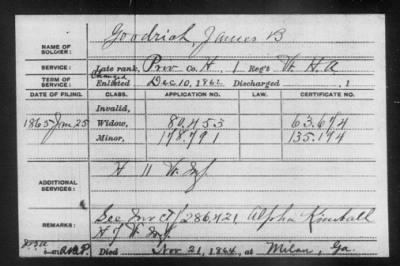 Goodrich, James B
NAME OF SOLDIER:
SERVICE: Late rank, Prv Co. H, 1 Reg't Vt. H.A
TERM OF SERVICE: Enlisted Dec. 10, 1862 Discharged , 1
DATE OF FILING. CLASS. APPLICATION NO. LAW. CERTIFICATE NO.
Invalid,
1865 Jan. 25 Widow, 80,453 63.674
Minor, 178.791 135.194
ADDITIONAL SERVICES: H 11 Vt. Inf.
REMARKS: See Inv Ctf 286,421, Alpha Kimball
H Vt. Inf.
Died Nov 21, 1864, at Milan, Ga.